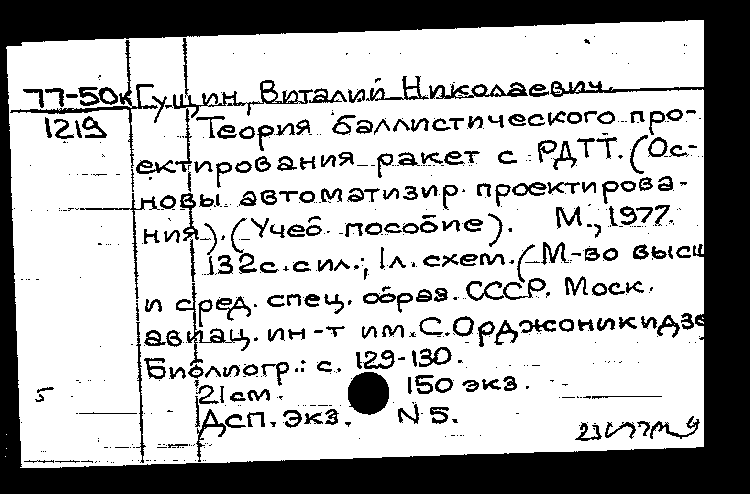 77-50к Гущин, Виталий Николаевич.
1219 Теория баллистического про-
ектирования ракет с РДТТ. (Ос-
новы автоматизир. проектирова-
ния). (Учеб. пособие). М., 1977.
132с. с ил.; 1л. схем. (М-во высш
и сред. спец. образ. СССР. Моск.
авиац. ин-т им. С. Орджоникидзе
Библиогр.: с. 129-130.
5 21см. 150 экз.
Дсп. экз. N 5.